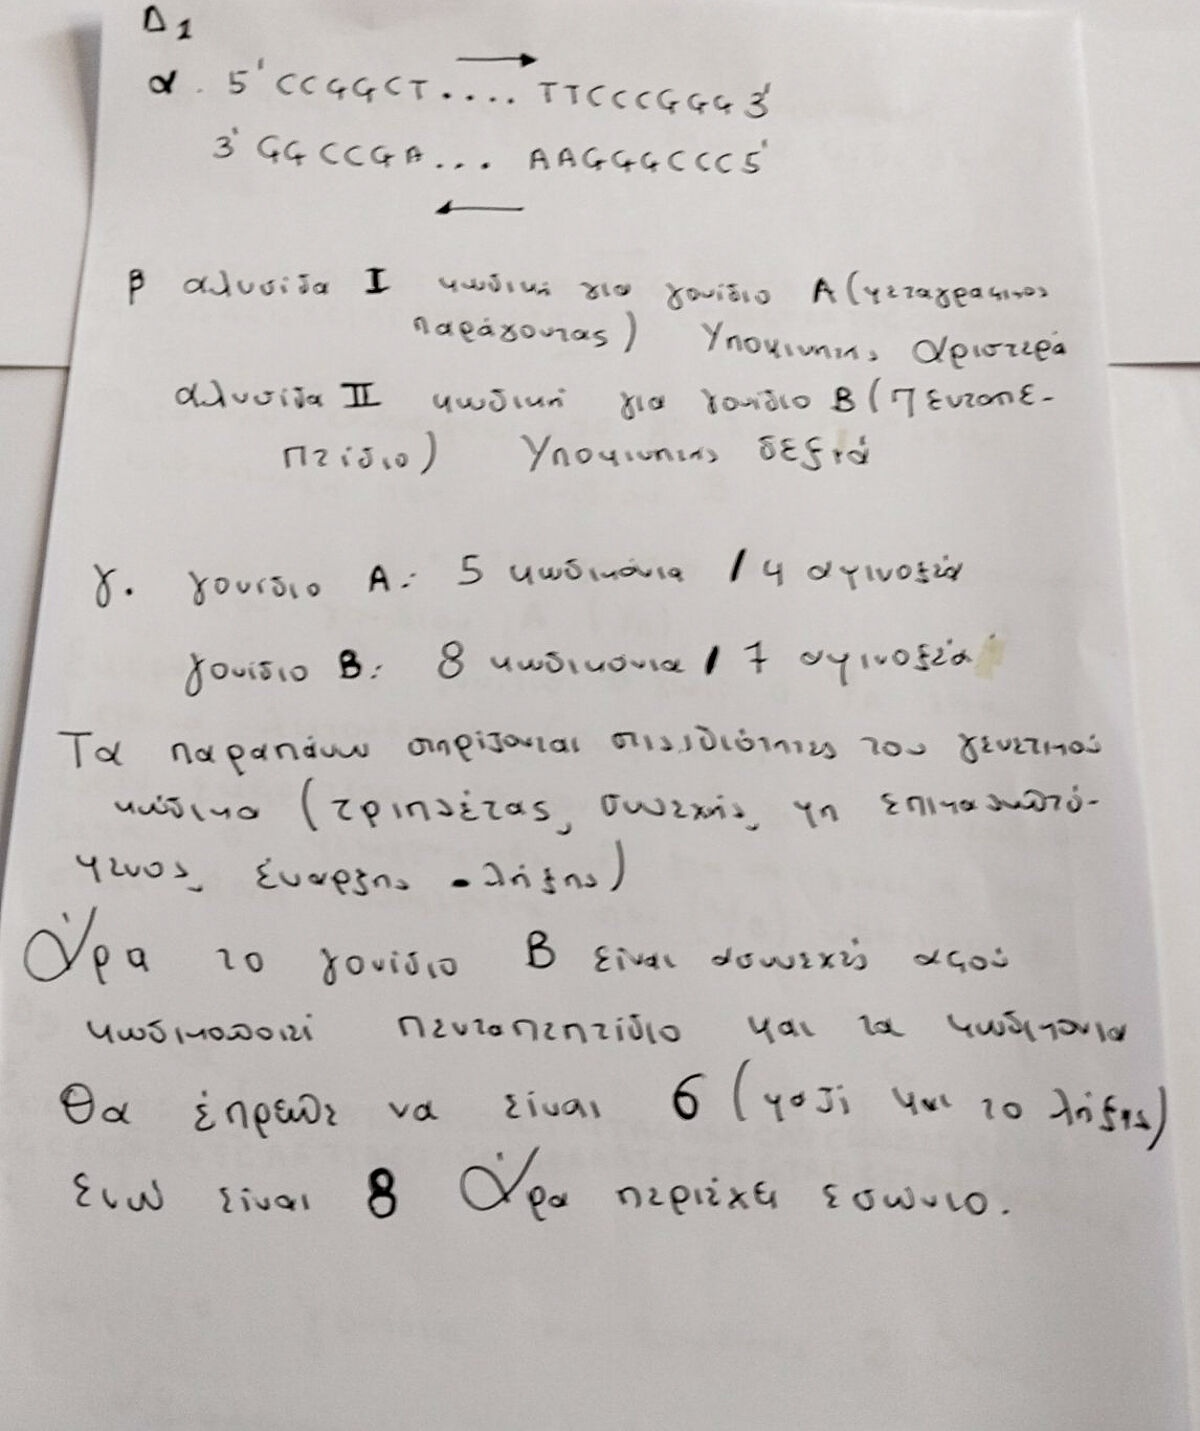 Δ1
α. 5' CCGGCT.... TTCCCGGG 3'
3' GGCCGA... AAGGGCCC 5'
β αλυσίδα I κωδική για γονίδιο A (μεταγραφικος
παράγοντας) Υποκινητης αριστερά
αλυσίδα II κωδική για γονίδιο B (πενταπε-
πτίδιο) Υποκινητης δεξιά
γ. γονίδιο A: 5 κωδικόνια / 4 αμινοξέα
γονίδιο B: 8 κωδικόνια / 7 αμινοξέα
Τα παραπάνω στηρίζονται στις ιδιότητες του γενετικού
κώδικα (τριπλέτας, συνεχής, μη επικαλυπτό-
μενος, έναρξης - λήξης)
Άρα το γονίδιο B είναι ασυνεχές αφού
κωδικοποιεί πενταπεπτίδιο και τα κωδικόνια
θα έπρεπε να είναι 6 (μαζί και το λήξης)
ενώ είναι 8 Άρα περιέχει εσώνιο.